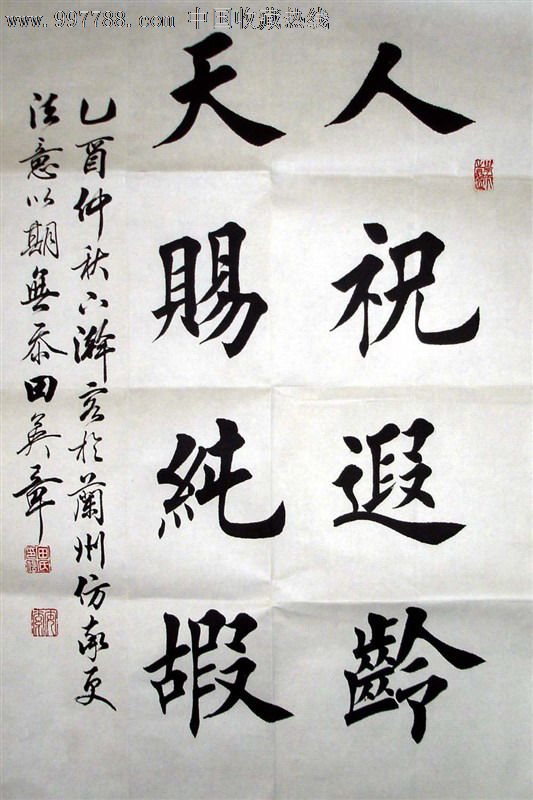 www.997788.com 中国收藏热线
人祝遐龄
天賜純嘏
乙酉仲秋下瀚客於蘭州仿率更
法意以期無忝田英章